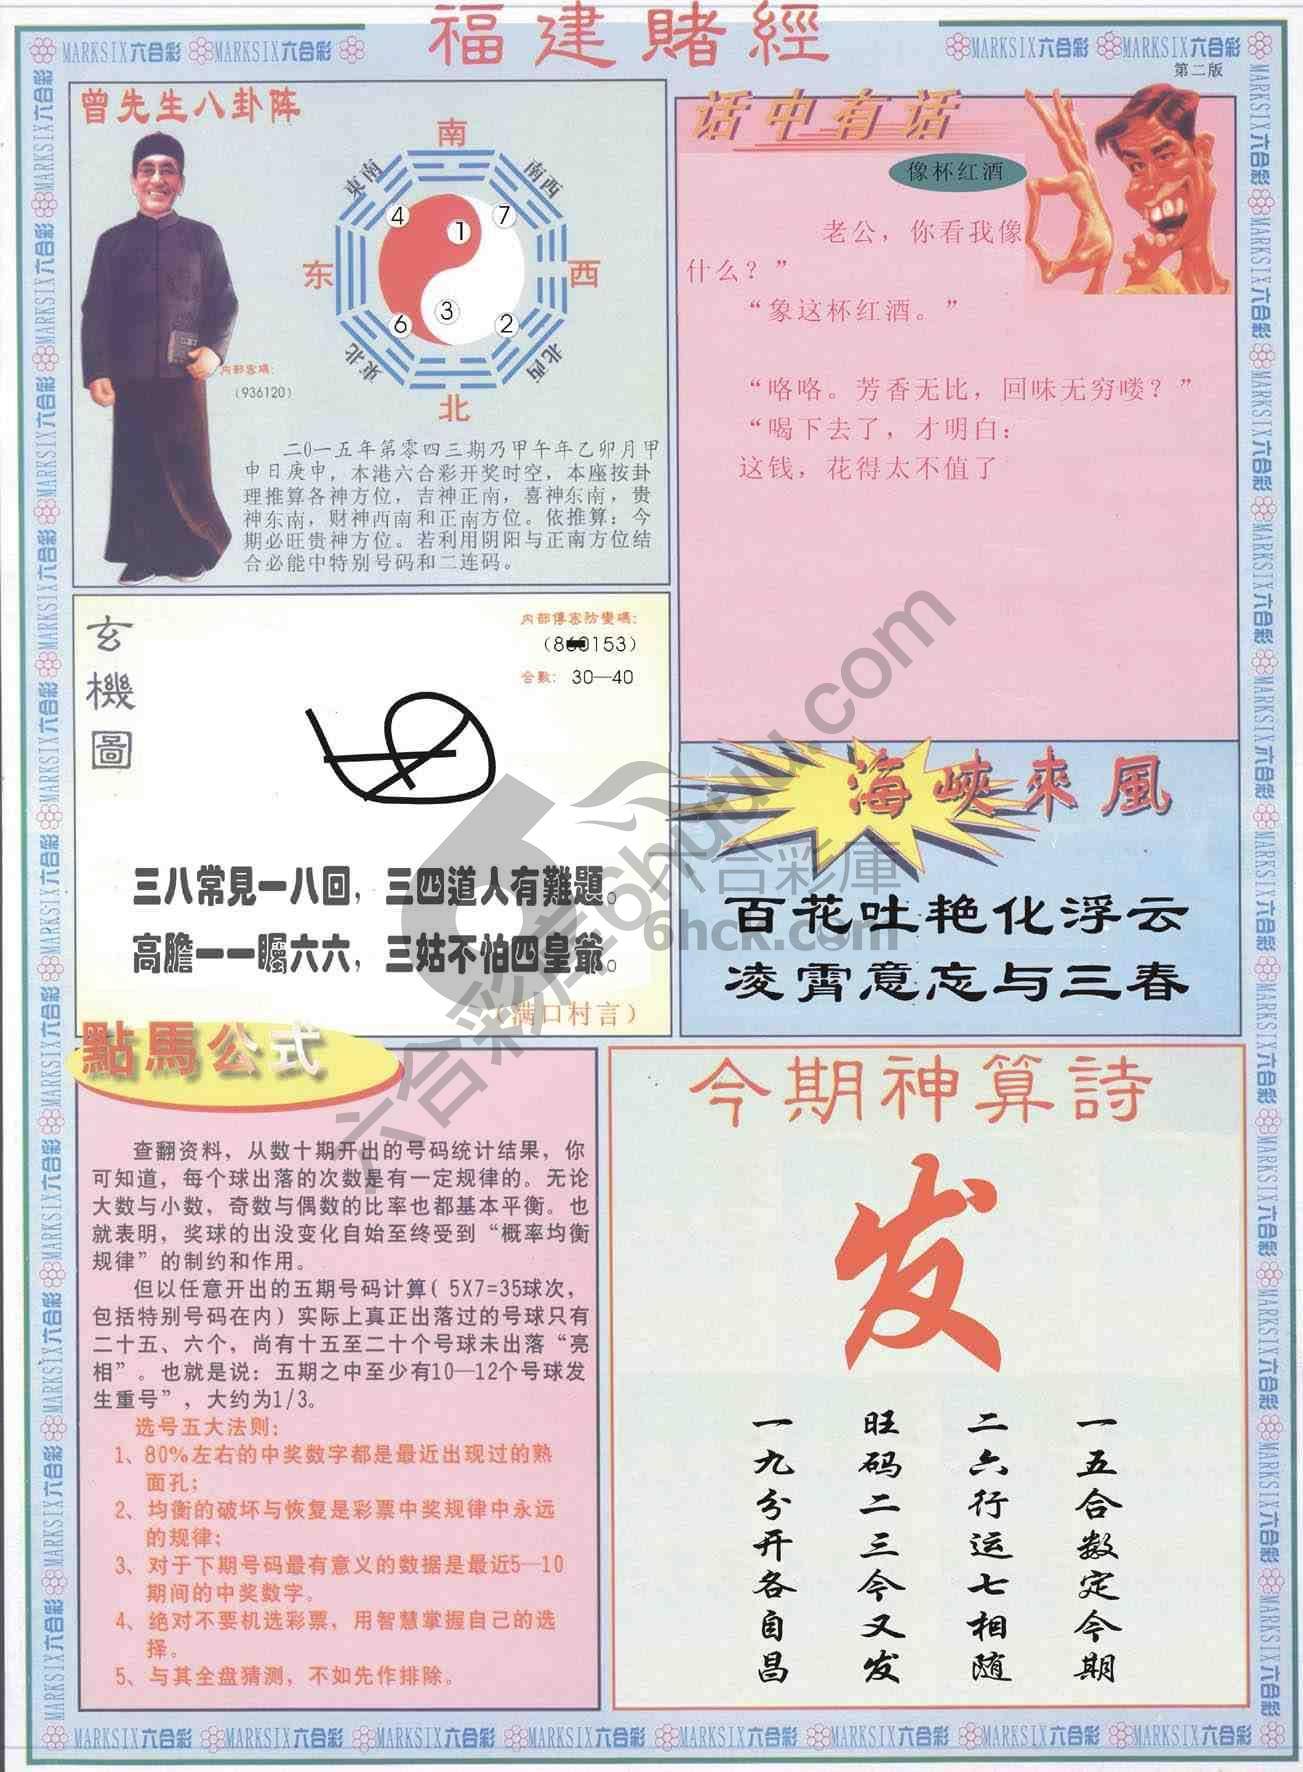 福建賭經
MARKSIX六合彩 MARKSIX六合彩
MARKSIX六合彩 MARKSIX六合彩
第二版
曾先生八卦阵
南
東南
南西
4
1
7
东
西
6
3
2
東北
北西
北
内部密碼:
(936120)
二0一五年第零四三期乃甲午年乙卯月甲
申日庚申，本港六合彩开奖时空，本座按卦
理推算各神方位，吉神正南，喜神东南，贵
神东南，财神西南和正南方位。依推算：今
期必旺贵神方位。若利用阴阳与正南方位结
合必能中特别号码和二连码。
话中有话
像杯红酒
老公，你看我像
什么？”
“象这杯红酒。”
“咯咯。芳香无比，回味无穷喽？”
“喝下去了，才明白：
这钱，花得太不值了
玄機圖
内部傳密防變碼:
153)
合數: 30—40
三八常見一八回，三四道人有難題。
高膽一一矚六六，三姑不怕四皇爺。
（满口村言）
海峽來風
百花吐艳化浮云
凌霄意忘与三春
點馬公式
查翻资料，从数十期开出的号码统计结果，你
可知道，每个球出落的次数是有一定规律的。无论
大数与小数，奇数与偶数的比率也都基本平衡。也
就表明，奖球的出没变化自始至终受到“概率均衡
规律”的制约和作用。
但以任意开出的五期号码计算( 5X7=35球次，
包括特别号码在内) 实际上真正出落过的号球只有
二十五、六个，尚有十五至二十个号球未出落“亮
相”。也就是说：五期之中至少有10—12个号球发
生重号”，大约为1/3。
选号五大法则：
1、80%左右的中奖数字都是最近出现过的熟
面孔；
2、均衡的破坏与恢复是彩票中奖规律中永远
的规律；
3、对于下期号码最有意义的数据是最近5—10
期间的中奖数字。
4、绝对不要机选彩票，用智慧掌握自己的选
择。
5、与其全盘猜测，不如先作排除。
今期神算詩
发
一五合数定今期
二六行运七相随
旺码二三今又发
一九分开各自昌
六合彩库6hduu.com
六合彩庫
6hck.com
MARKSIX六合彩 MARKSIX六合彩 MARKSIX六合彩 MARKSIX六合彩 MARKSIX六合彩 MARKSIX六合彩 MARKSIX六合彩 MARKSIX六合彩